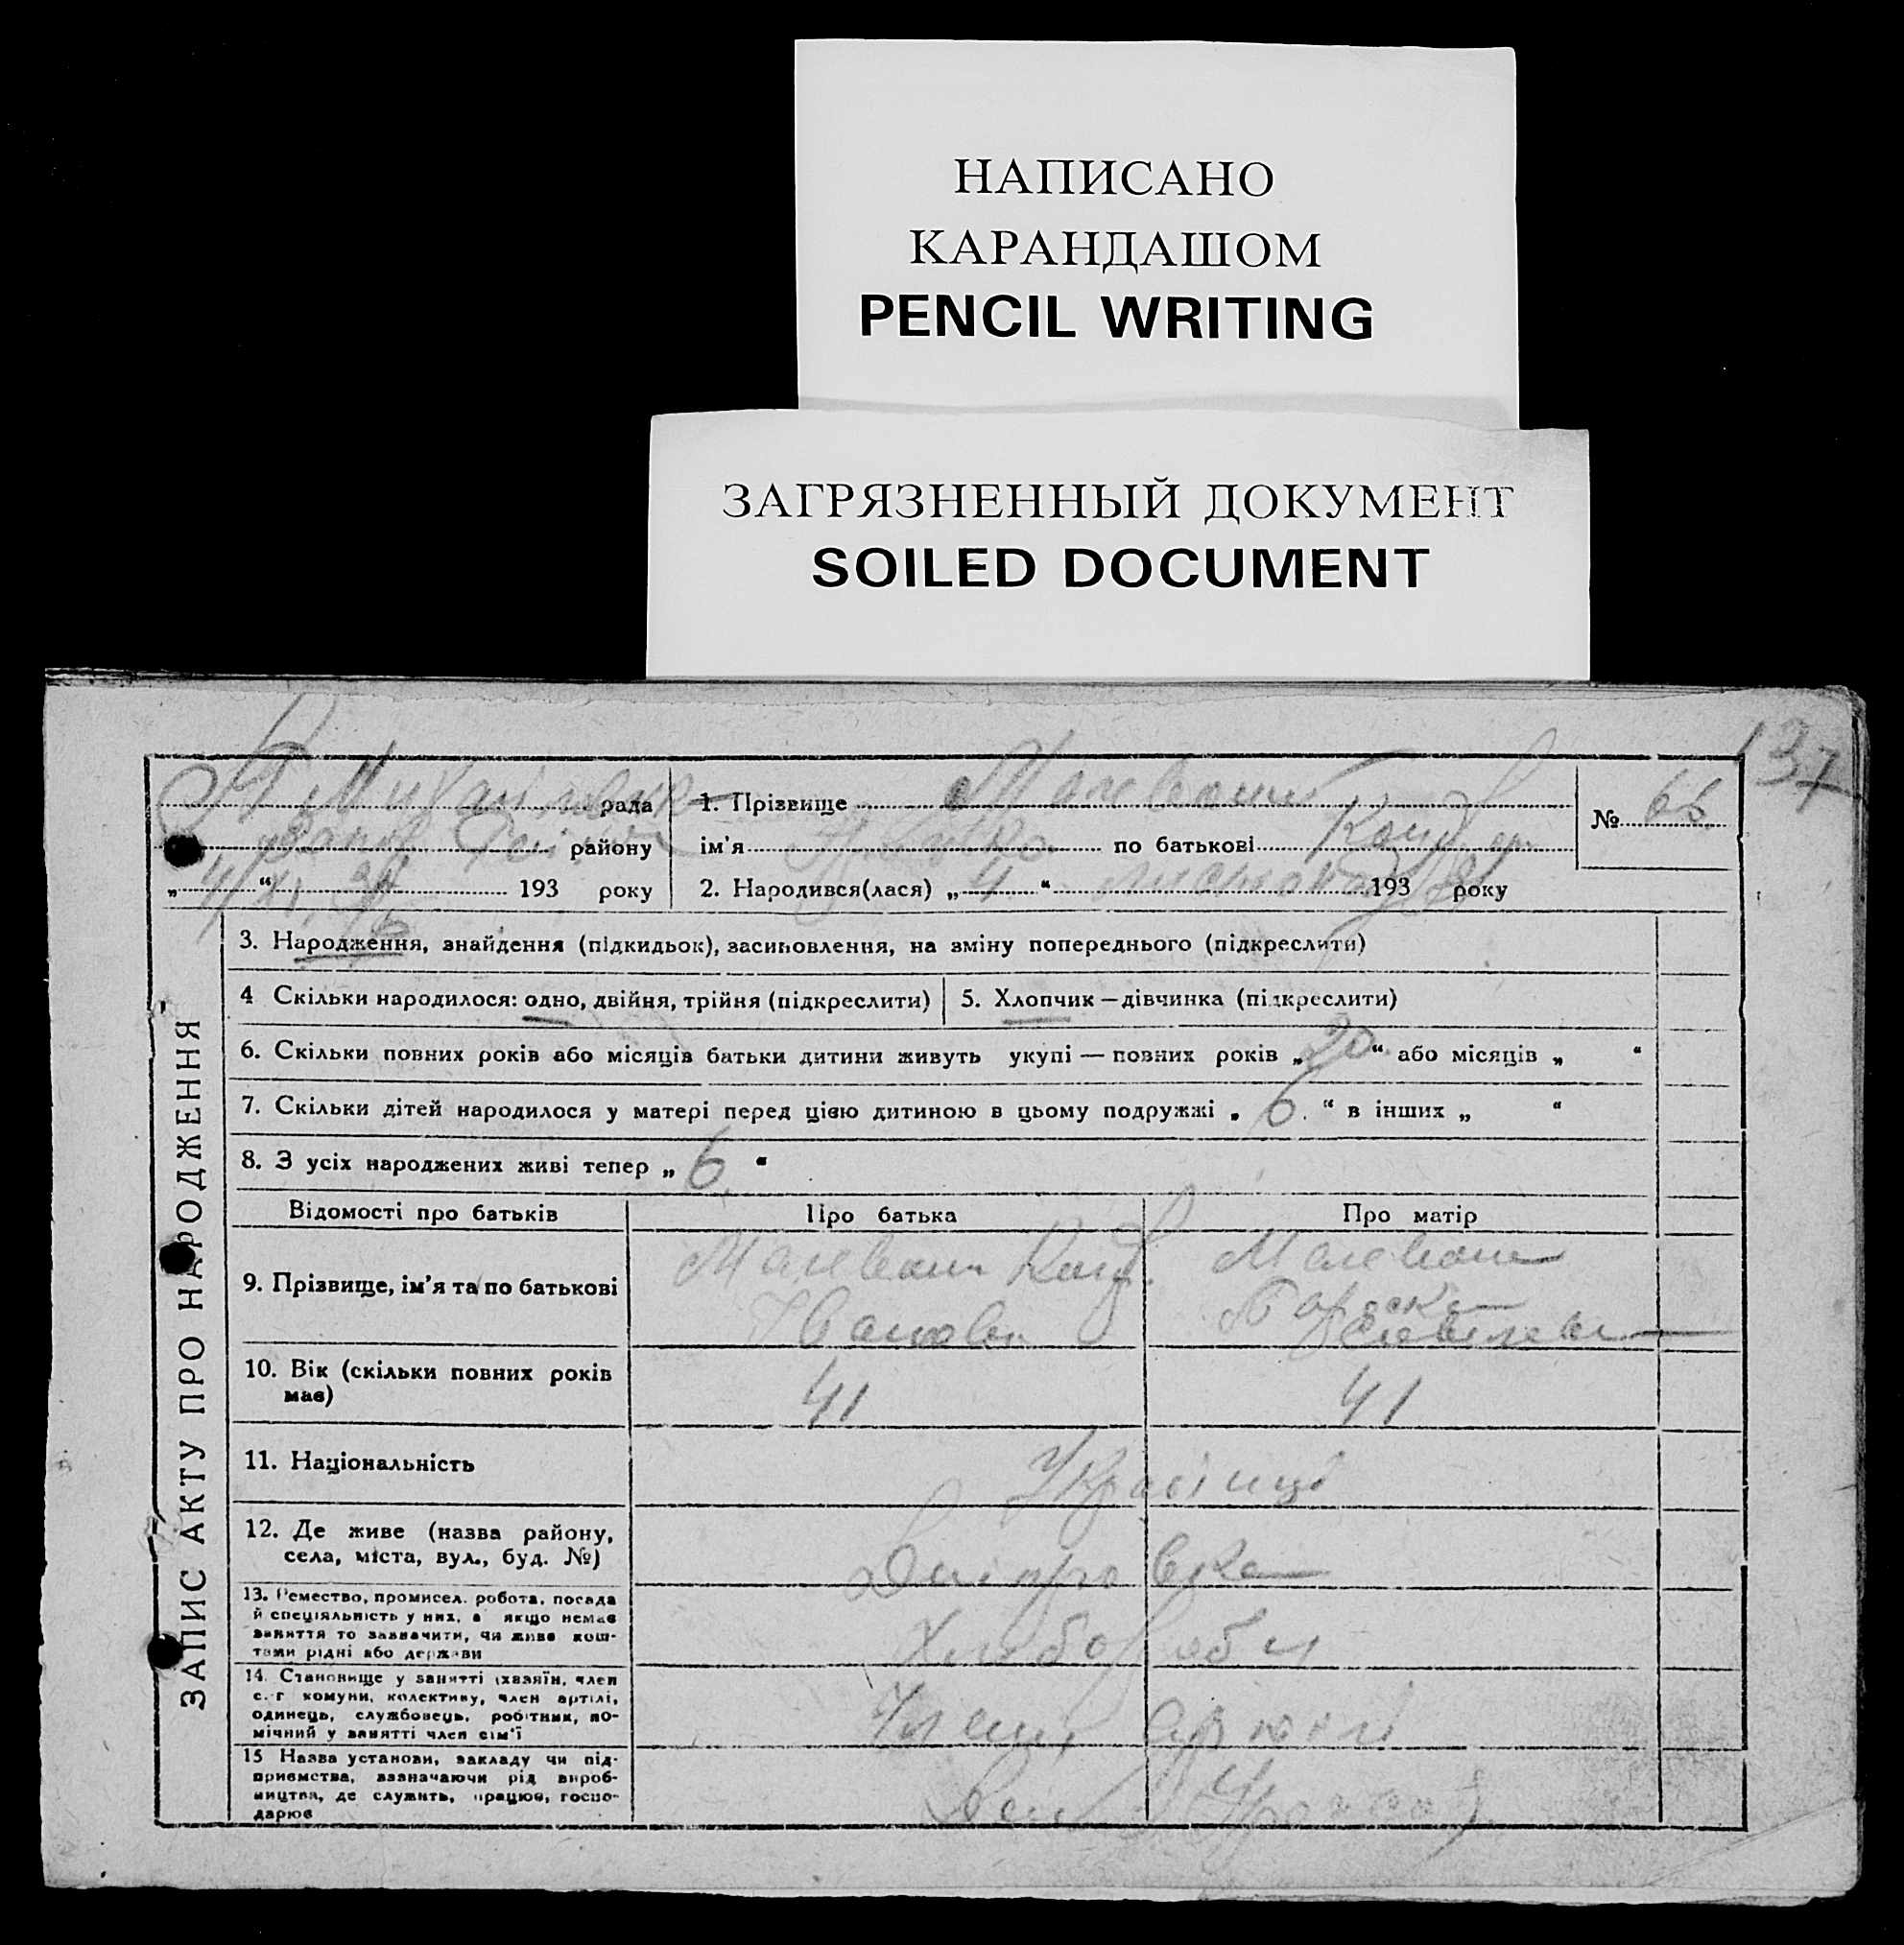 НАПИСАНО
КАРАНДАШОМ
PENCIL WRITING
ЗАГРЯЗНЕННЫЙ ДОКУМЕНТ
SOILED DOCUMENT
137
рада
району
„ “ 193 року
1. Прізвище
ім'я по батькові
2. Народився(лася) „ 4 “ 193 року
№ 66
ЗАПИС АКТУ ПРО НАРОДЖЕННЯ
3. Народження, знайдення (підкидьок), засиновлення, на зміну попереднього (підкреслити)
4 Скільки народилося: одно, двійня, трійня (підкреслити)
5. Хлопчик — дівчинка (підкреслити)
6. Скільки повних років або місяців батьки дитини живуть укупі — повних років „ 20 “ або місяців „ “
7. Скільки дітей народилося у матері перед цією дитиною в цьому подружжі „ 6. “ в інших „ “
8. З усіх народжених живі тепер „ 6 “
Відомості про батьків
Про батька
Про матір
9. Прізвище, ім'я та по батькові
10. Вік (скільки повних років
має)
41
41
11. Національність
Українці
12. Де живе (назва району,
села, міста, вул., буд. №)
Дніпровка
13. Ремество, промисел. робота, посада
й спеціяльність у них, а якщо немає
заняття то зазначити, чи живе кош-
тами рідні або держави
Хлібороби
14. Становище у занятті (хазяїн, член
с.-г комуни, колективу, член артілі,
одинець, службовець, робітник, по-
мічний у занятті член сім'ї
Члени артілі
15 Назва установи, закладу чи під-
приємства, зазначаючи рід вироб-
ництва, де служить, працює, госпо-
дарює